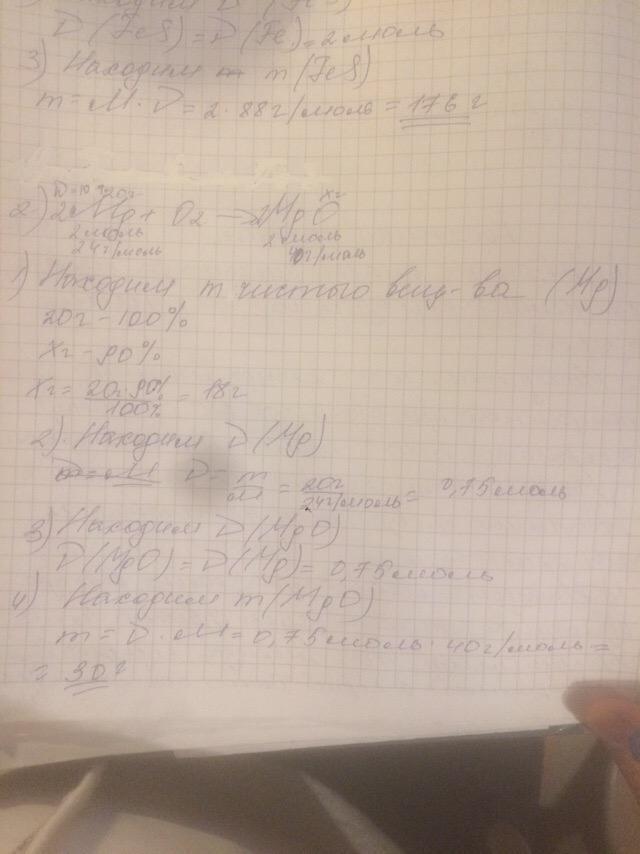 D (FeS) = D (Fe) = 2 моль
3) Находим m (FeS)
m = M · D = 2 · 88 г/моль = 176 г
20г хг
2) 2Mg + O2 → 2MgO
2 моль 2 моль
24 г/моль 40 г/моль
1) Находим m чистого вещ-ва (Mg)
20г - 100%
хг - 90%
хг = 20г·90% / 100% = 18г
2) Находим D (Mg)
D = m / M = 20г / 24г/моль = 0,75 моль
3) Находим D (MgO)
D (MgO) = D (Mg) = 0,75 моль
4) Находим m (MgO)
m = D · M = 0,75 моль · 40 г/моль =
= 30 г